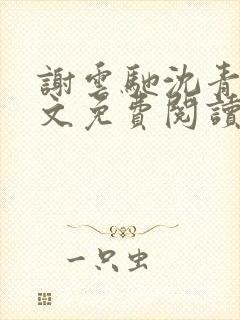 謝雲馳沈青
文免費閱讀
一只虫